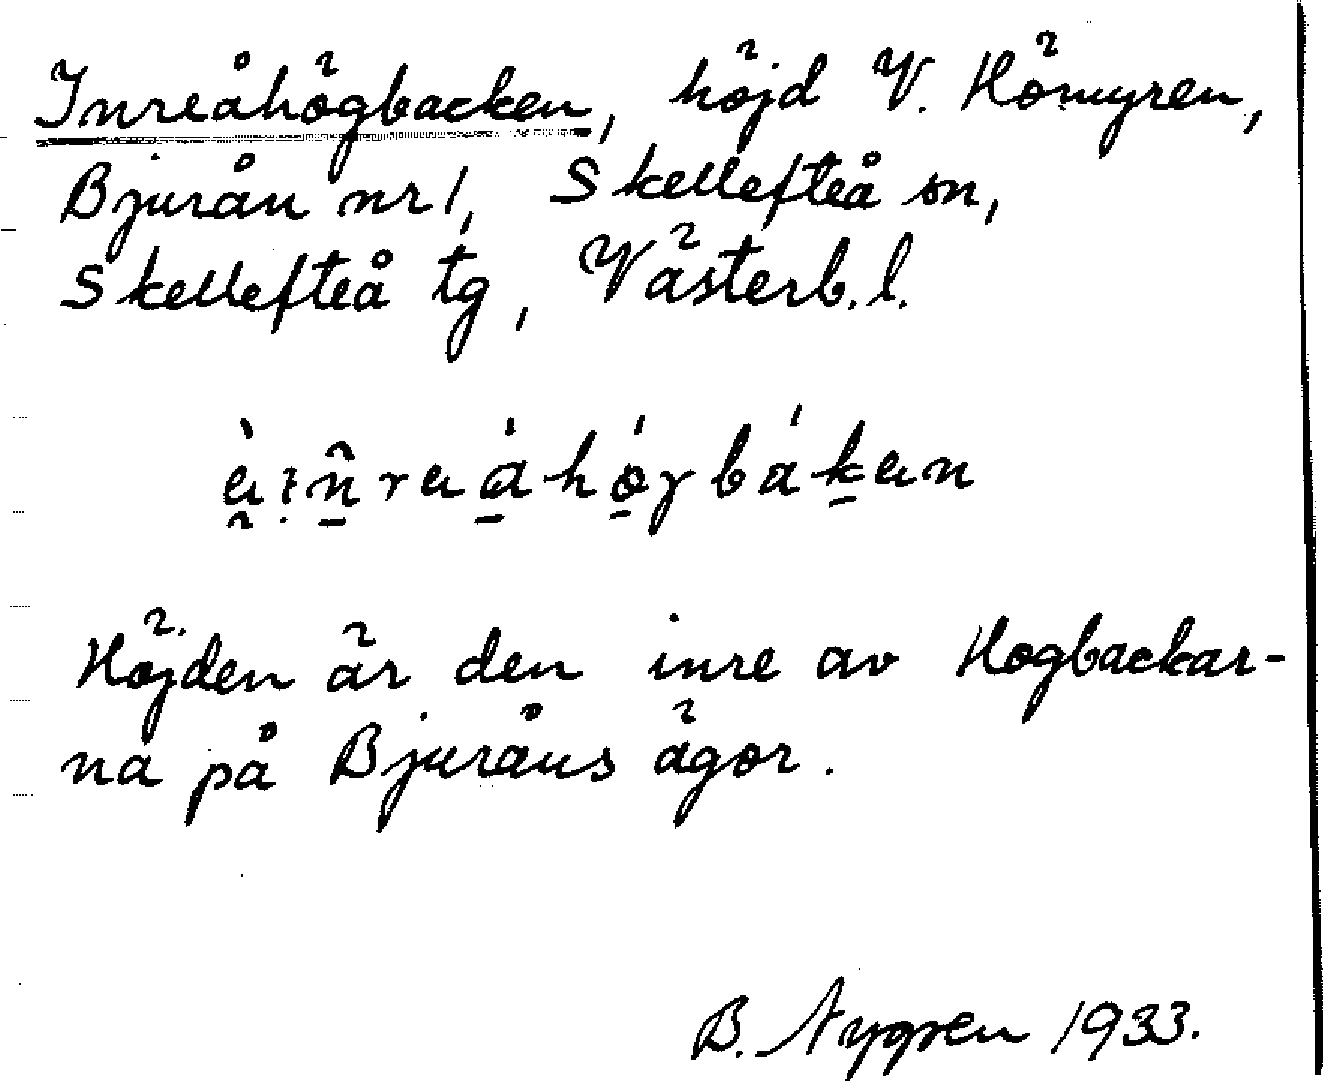 Inreåhögbacken, höjd V. Hömyren,
Bjurån nr 1, Skellefteå sn,
Skellefteå tg, Västerb. l.
Höjden är den inre av Hogbackar-
na på Bjuråns ägor.
B. Nygren 1933.